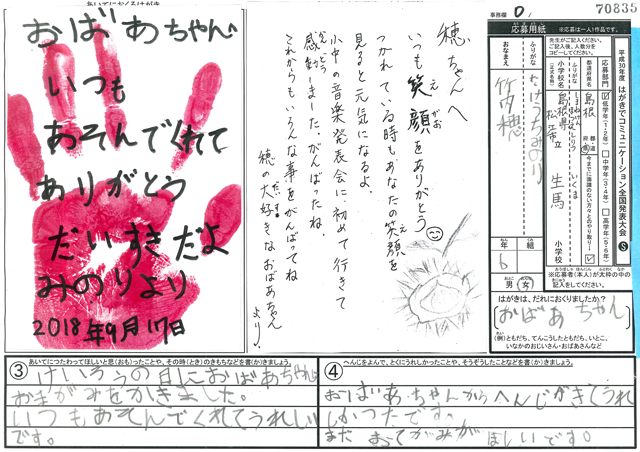 あいてにおくるはがき
おばあちゃん
いつも
あそんでくれて
ありがとう
だいすきだよ
みのりより
2018年9月17日
穂ちゃんへ
いつも笑顔をありがとう
えがお
つかれている時もあなたの笑顔を
見ると元気になるよ。
小中の音楽発表会に初めて行きて
感動しました、がんばったね
かんどう
これからもいろんな事をがんばってね
だいす
穂の大好きなおばあちゃん
より♪
事務欄
70835
応募用紙
※応募は一人1作品です。
先生がご記入ください。
ご記入後、人数分を
コピーしてください。
平成30年度 はがきでコミュニケーション全国発表大会 S
応募部門
低学年(1・2年)
中学年(3・4年)
高学年(5・6年)
都道府県名
島根
都・道
府・県
今までに面識のない方々とのやり取り→
ふりがな
小学校名
(正式名称)
島根県
松江市立
いくま
生馬
小学校
ふりがな
たけうちみのり
おなまえ
竹内穂
年
組
男・女
※応募者(本人)が太枠の中の
記入をしてください。
はがきは、だれにおくりましたか?
おばあちゃん
(例)ともだち、てんこうしたともだち、いとこ、
いなかのおじいさん・おばあさんなど
③
あいてにつたわってほしいと思(おも)ったことや、その時(とき)のきもちなどを書(か)きましょう。
けいろうの日におばあちゃんに
おてがみをかきました。
いつもあそんでくれてうれしい
です。
④
へんじをよんで、とくにうれしかったことや、そうぞうしたことなどを書(か)きましょう。
おばあちゃんからへんじがきてうれ
しかったです。
まだ おてがみが ほしいです。